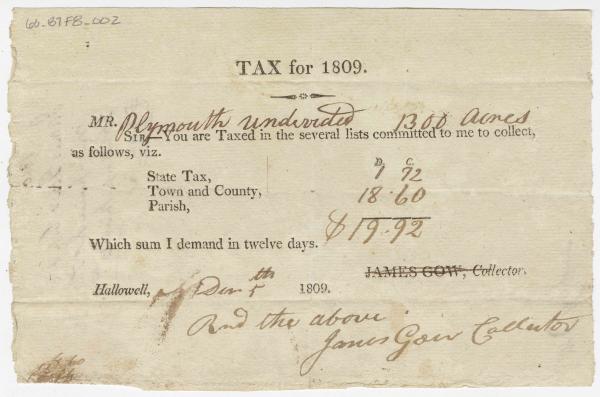 66.B7F8.002
TAX for 1809.
MR. Plymouth undivided 1300 Acres
SIR—You are Taxed in the several lists committed to me to collect,
as follows, viz.
D. C.
State Tax, 1 72
Town and County, 18.60
Parish,
$19.92
Which sum I demand in twelve days.
JAMES GOW, Collector.
Hallowell, 5th 1809.
Recd the above
James Gow Collector